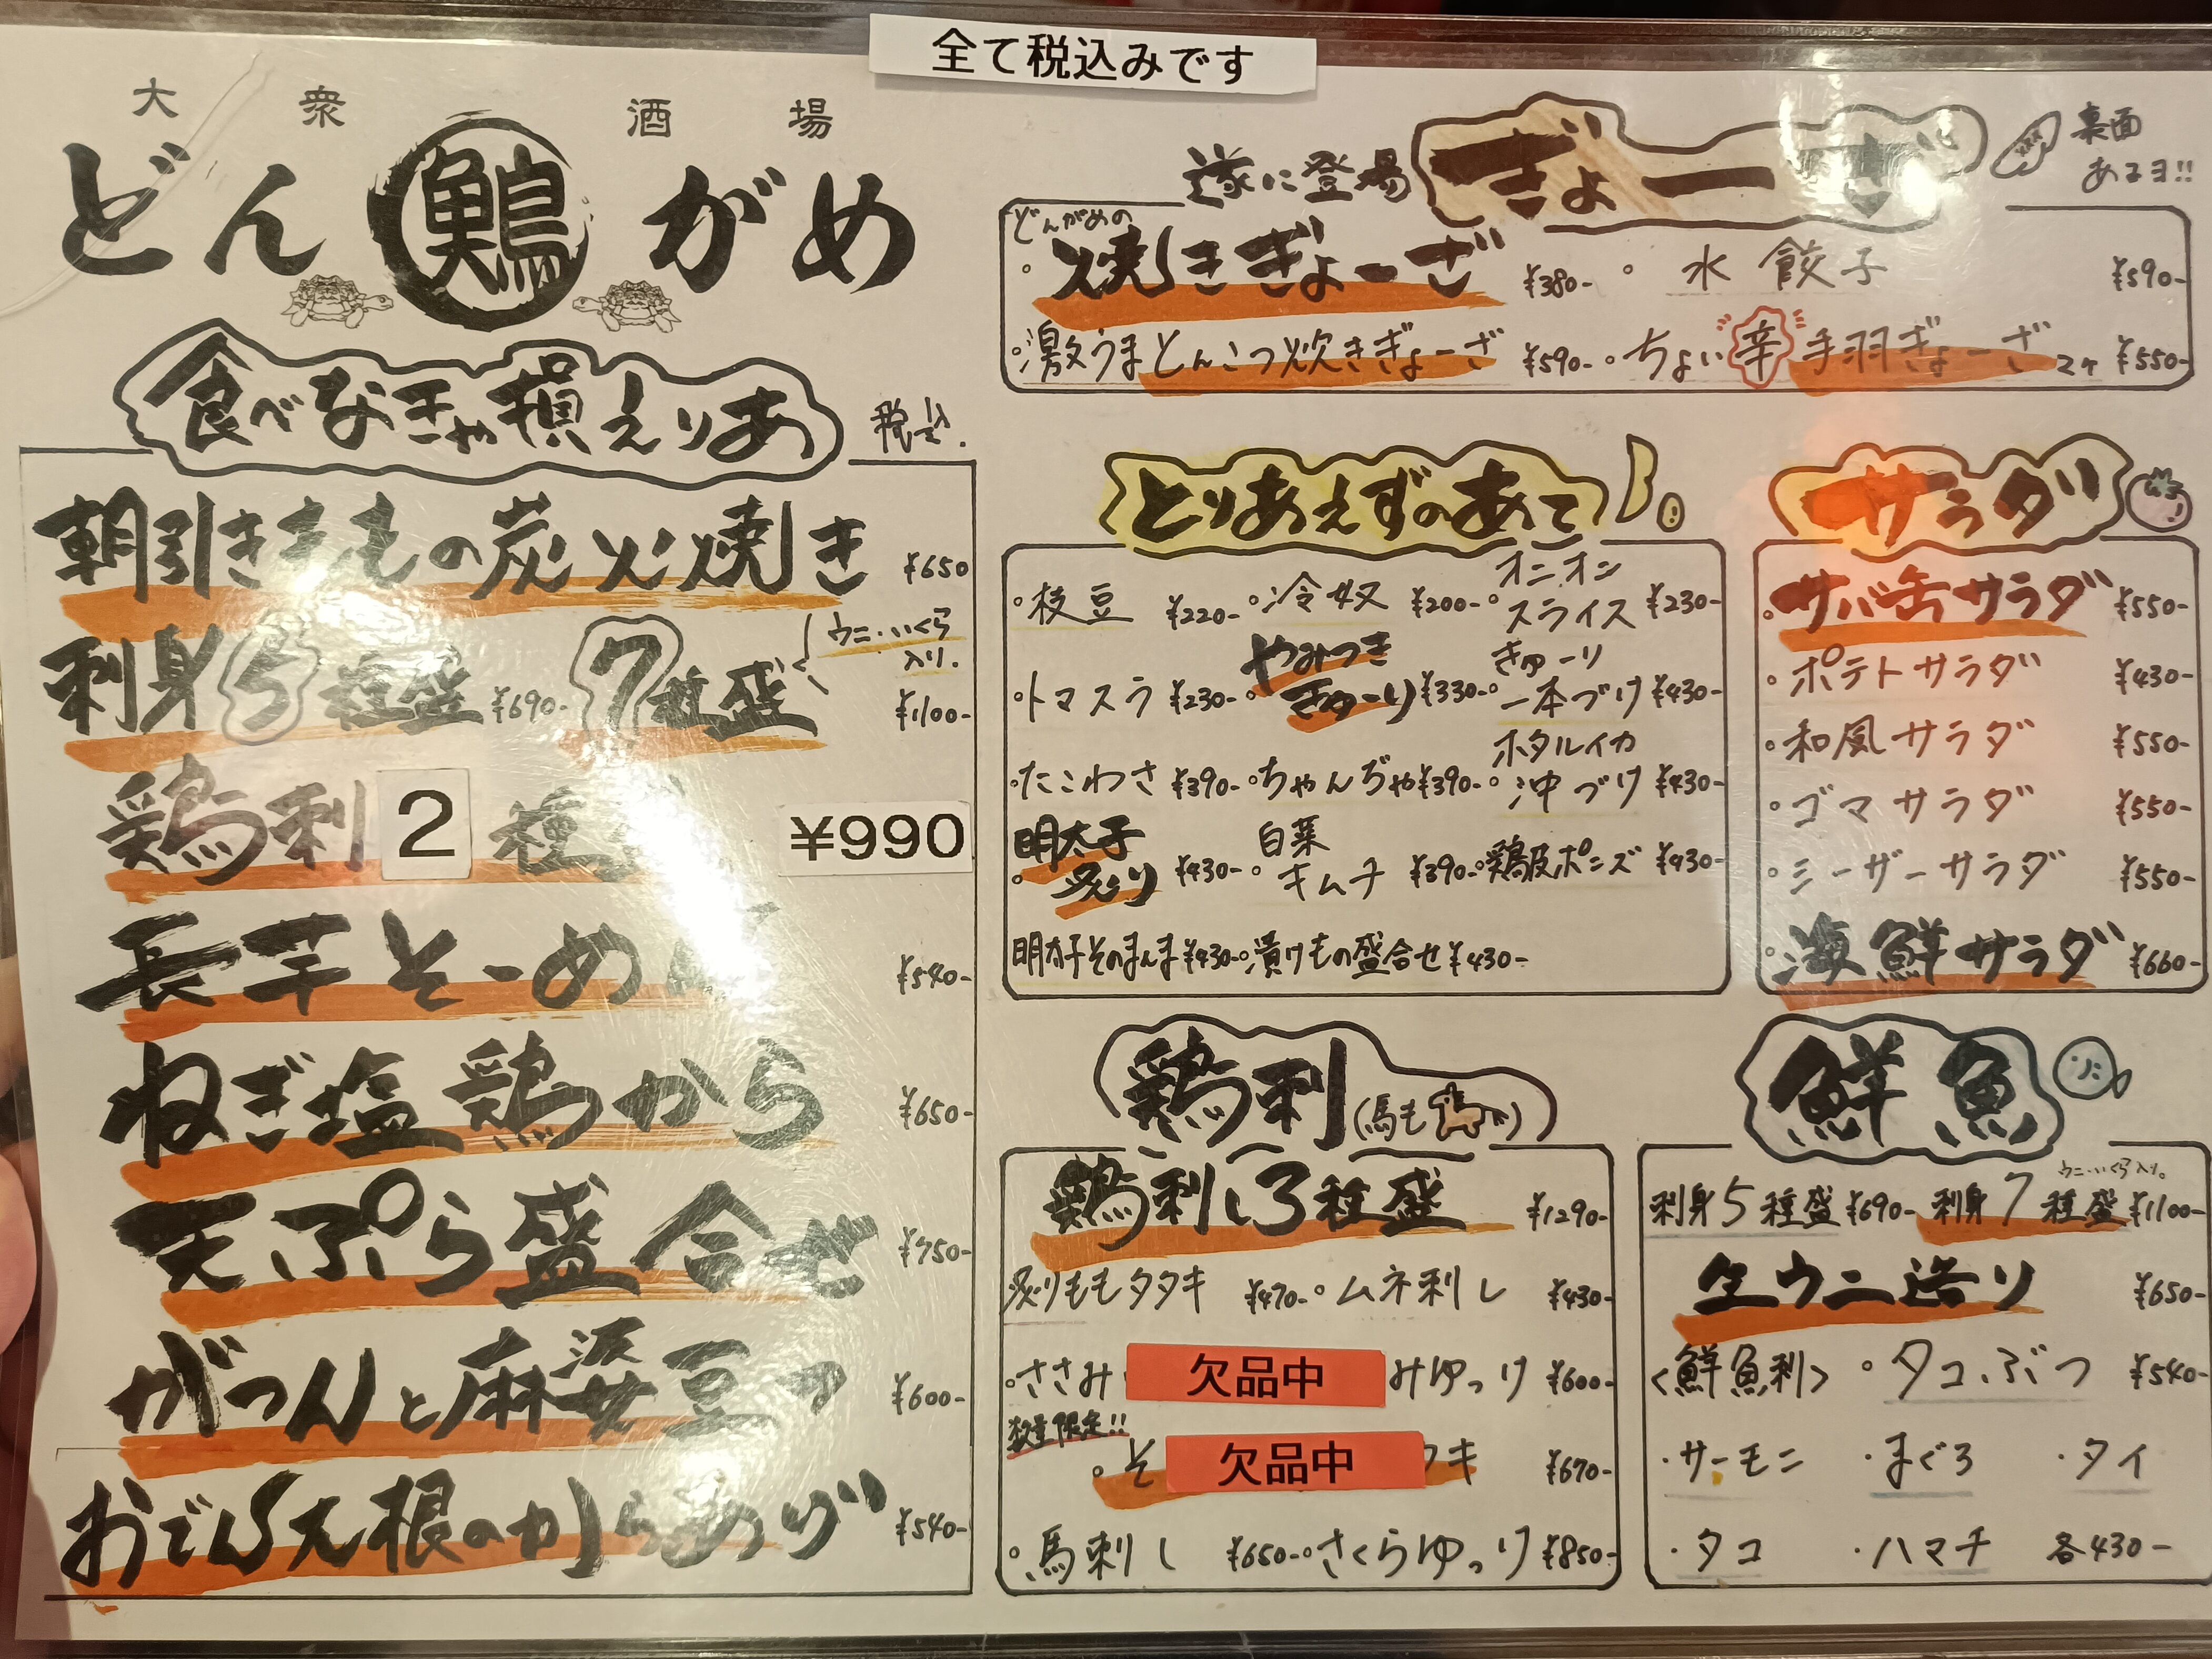 全て税込みです
大衆酒場
どん鶏がめ
食べなきゃ損えりあ 税込.
朝引きももの炭火焼き ¥650
刺身5種盛 ¥690- 7種盛 ウニ・いくら入り. ¥1100-
鶏刺2種 ¥990
長芋そーめん ¥540-
ねぎ塩鶏から ¥650-
天ぷら盛合せ ¥750-
がつんと麻婆豆フ ¥600-
おでん大根のからあげ ¥540-
遂に登場 ぎょーざ 裏面あるヨ!!
どんがめの
・焼きぎょーざ ¥380- ・水餃子 ¥590-
・激うまとんこつ炊きぎょーざ ¥590- ・ちょい辛手羽ぎょーざ 2ヶ ¥550-
とりあえずのあて
・枝豆 ¥220- ・冷奴 ¥200- ・オニオンスライス ¥230-
・トマスラ ¥230- ・やみつききゅーり ¥330- ・きゅーり一本づけ ¥430-
・たこわさ ¥390- ・ちゃんぢゃ ¥390- ・ホタルイカ沖づけ ¥430-
・明太子炙り ¥430- ・白菜キムチ ¥390- ・鶏皮ポンズ ¥430-
明太子そのまんま ¥430- ・漬けもの盛合せ ¥430-
サラダ
・サバ缶サラダ ¥550-
・ポテトサラダ ¥430-
・和風サラダ ¥550-
・ゴマサラダ ¥550-
・シーザーサラダ ¥550-
・海鮮サラダ ¥660-
鶏刺(馬も)
鶏刺し3種盛 ¥1290-
炙りももタタキ ¥470- ・ムネ刺し ¥430-
・ささみ 欠品中 みゆっけ ¥600-
数量限定!!
・そ 欠品中 タキ ¥670-
・馬刺し ¥650- ・さくらゆっけ ¥850-
鮮魚
ウニ・いくら入り。
刺身5種盛 ¥690- 刺身7種盛 ¥1100-
生ウニ造り ¥650-
<鮮魚刺> ・タコぶつ ¥540-
・サーモン ・まぐろ ・タイ
・タコ ・ハマチ 各430-